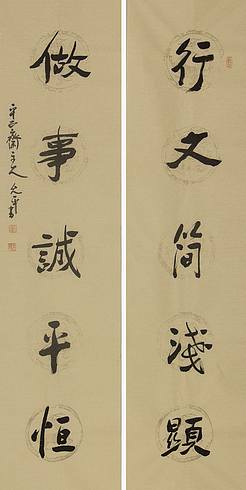 行文简淺顯
做事誠平恒
齋主人